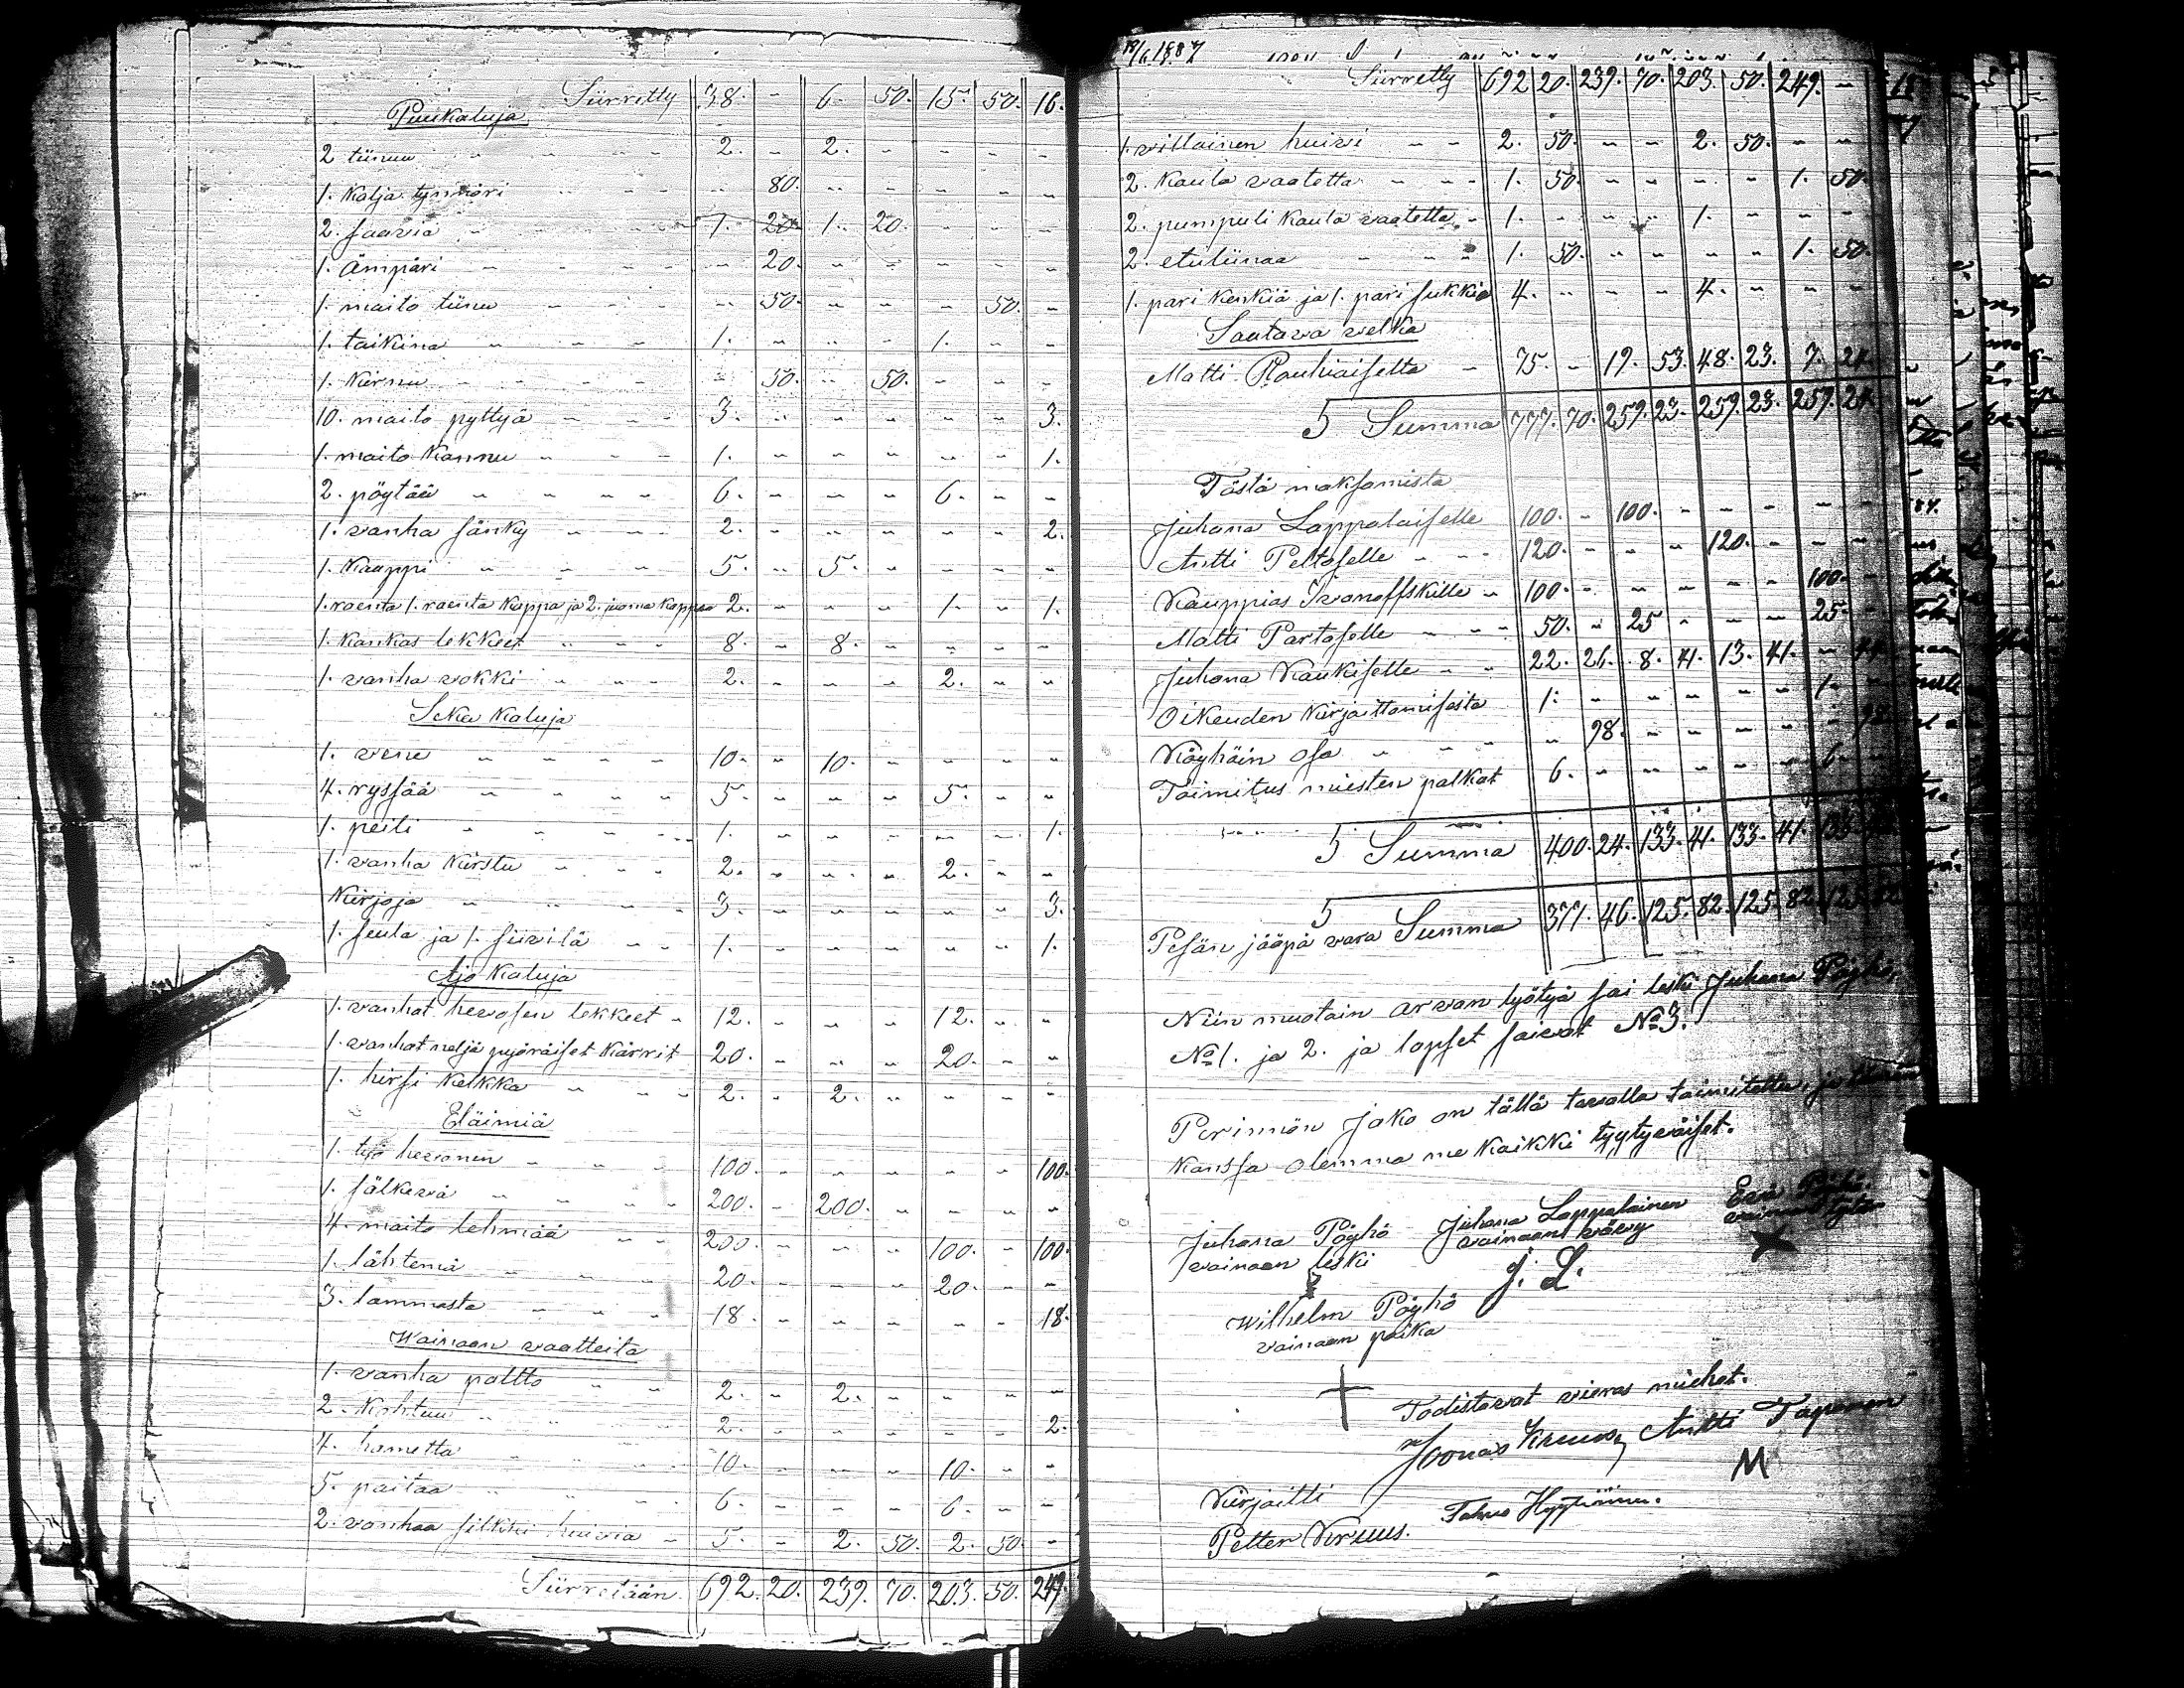 Siirretty 38. - 6. 50. 15. 50. 16.
Puukaluja
2 tiinuu 2. - 2. - - - -
1. kalja tynnöri - 80. - - - - -
2. saavia 1. 20 1. 20. - - -
1. Ämpäri - 20. - - - - -
1. maito tiinu - 50. - - - 50. -
1. taikina 1. - - - 1. - -
1. kirnu - 50. - 50. - - -
10. maito pyttyä 3. - - - - - 3.
1. maito kannu 1. - - - - - 1.
2. pöytää 6. - - - 6. - -
1. vanha sänky 2. - - - - - 2.
1. kaappi 5. - 5. - - - -
2. - - - 1. - 1.
1. kankas lekkeet 8. - 8. - - - -
1. vanha vokki 2. - - - 2. - -
Seka kaluja
1. vene 10. - 10. - - - -
4. ryssää 5. - - - 5. - -
1. peili 1. - - - - - 1.
1. vanha kirstu 2. - - - 2. - -
kirjoja 3. - - - - - 3.
1. seula ja 1. siivilä 1. - - - - - 1.
Ajo kaluja
1. vanhat hevosen lekkeet 12. - - - 12. - -
1. vanhat neljä pyöräiset kärrit 20. - - - 20. - -
1. hirsi kelkka 2. - 2. - - - -
Eläimiä
1. työ hevonen 100. - - - - - 100.
1. sälkevä 200. - 200. - - - -
4. maito lehmiää 200. - - - 100. - 100.
1. lähtemä 20. - - - 20. - -
3. lammasta 18. - - - - - 18.
Wainaan vaatteita
1. vanha paltto 2. - 2. - - - -
2. kohtuu 2. - - - - - 2.
4. hametta 10. - - - 10. - -
5. paitaa 6. - - - 6. - -
2. vanhaa silkki huivia 5. - 2. 50. 2. 50. -
Siirretään. 692. 20. 239. 70. 203. 50. 249.
19/6 1887
Siirretty 692 20. 239. 70. 203. 50. 249. -
1. villainen huivi 2. 50. - - 2. 50. - -
2. kaula vaatetta 1. 50. - - - - 1. 50.
2. pumpuli kaula vaatetta 1. - - - 1. - - -
2. etuliinaa 1. 50. - - - - 1. 50.
1. pari kenkiä ja 1. pari sukkia 4. - - - 4. - - -
Saatava velka
Matti Rauhiaiselta 75. - 19. 53. 48. 23. 7. 24.
Summa 777. 70. 259. 23. 259. 23. 259. 24.
Tästä maksamista
Juhana Lappalaiselle 100. - 100. - - - - -
Antti Peltoselle 120. - - - 120. - - -
Kauppias Ivanoffskille 100. - - - - - 100. -
Matti Partoselle 50. - 25 - - - 25. -
Juhana Kaukiselle 22. 26. 8. 41. 13. 41. -
Oikeuden kirjaittamisesta 1. - - - - - 1. -
Köyhäin osa - 98. - - - - - 98.
Toimitus miesten palkat 6. - - - - - 6. -
Summa 400. 24. 133. 41. 133. 41. 133.
Pesän jääpä vara Summa 377. 46. 125. 82. 125. 82. 125. 82.
Niin muotoin arvan lyötyä sai leski Juhana Pöyhö,
No 1. ja 2. ja lapset saivat No 3.
Perinnön jako on tällä tavalla toimitettu, ja
kanssa olemma me kaikki tyytyväiset.
Juhana Pöyhö Juhana Lappalainen Eeva Pöyhö
vainaan leski vainaan vävy vainaan tytär
J. L.
Wilhelm Pöyhö
vainaan poika
Todistavat vieras miehet.
Joonas Kruus, Antti Taponen
M
Kirjoitti
Petter Kruus.